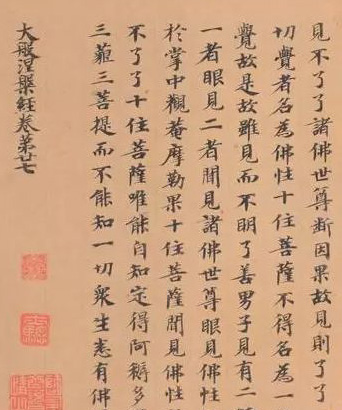 見不了了諸佛世尊斷因果故見則了了
切覺者名為佛性十住菩薩不得名為一
覺故是故雖見而不明了善男子見有二
一者眼見二者聞見諸佛世尊眼見佛性
於掌中觀菴摩勒果十住菩薩聞見佛性
不了了十住菩薩唯能自知定得阿耨多
三藐三菩提而不能知一切衆生悉有佛
大般涅槃經卷第廿七